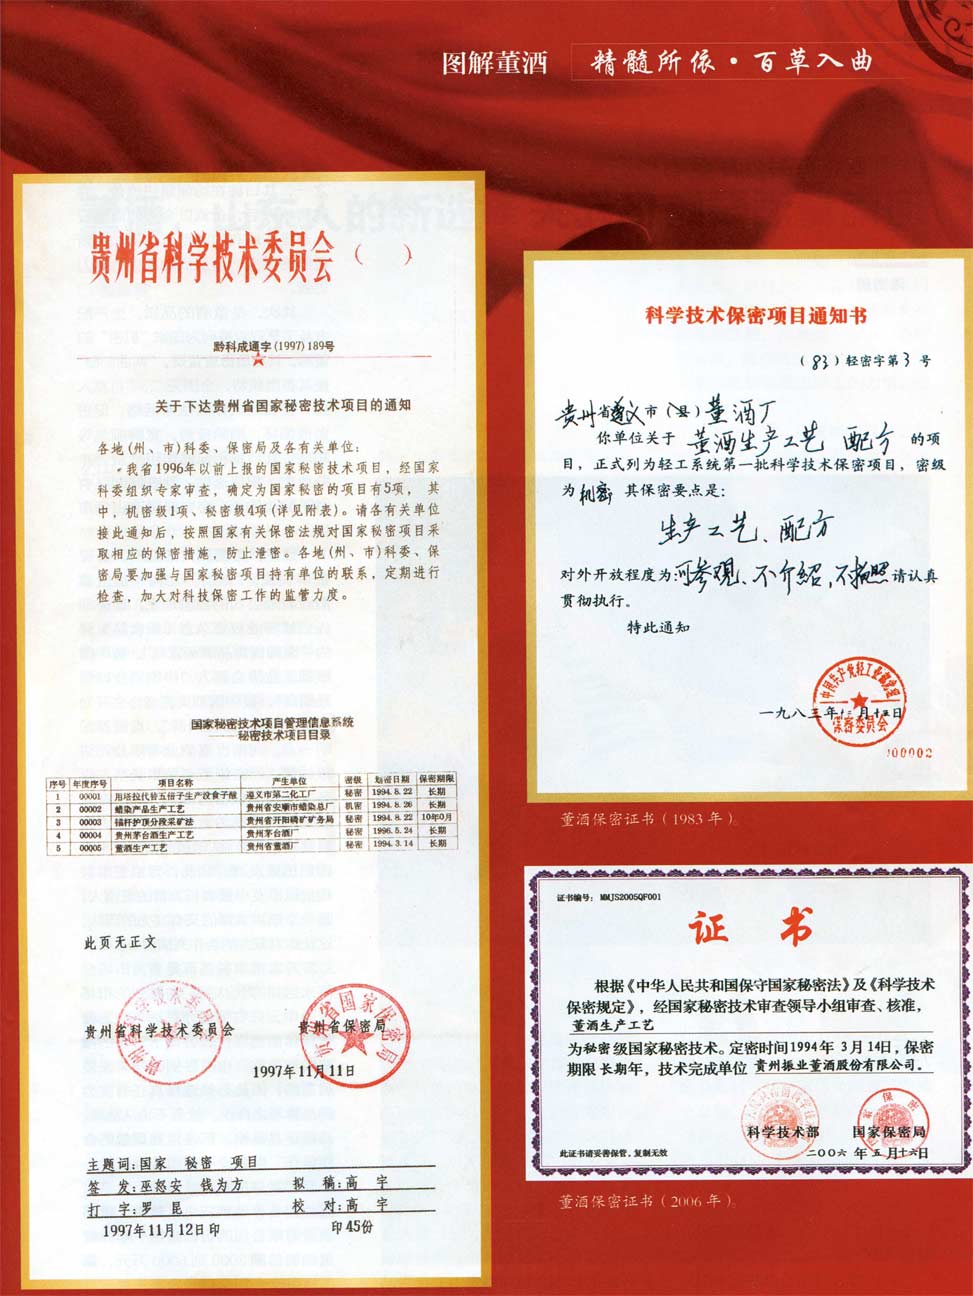 图解董酒 精髓所依·百草入曲
贵州省科学技术委员会（ ）
黔科成通字(1997)189号
关于下达贵州省国家秘密技术项目的通知
各地(州、市)科委、保密局及各有关单位:
我省1996年以前上报的国家秘密技术项目，经国家
科委组织专家审查，确定为国家秘密的项目有5项，其
中，机密级1项、秘密级4项(详见附表)。请各有关单位
接此通知后，按照国家有关保密法规对国家秘密项目采
取相应的保密措施，防止泄密。各地(州、市)科委、保
密局要加强与国家秘密项目持有单位的联系，定期进行
检查，加大对科技保密工作的监管力度。
国家秘密技术项目管理信息系统
——秘密技术项目目录
序号 年度序号 项目名称 产生单位 密级 划密日期 保密期限
1 00001 用塔拉代替五倍子生产没食子酸 遵义市第二化工厂 秘密 1994.8.22 长期
2 00002 蜡染产品生产工艺 贵州省安顺市蜡染总厂 机密 1994.8.26 长期
3 00003 锚杆护顶分段采矿法 贵州省开阳磷矿矿务局 秘密 1994.8.22 10年0月
4 00004 贵州茅台酒生产工艺 贵州茅台酒厂 秘密 1996.5.24 长期
5 00005 董酒生产工艺 贵州省董酒厂 秘密 1994.3.14 长期
此页无正文
贵州省科学技术委员会 贵州省保密局
1997年11月11日
主题词:国家 秘密 项目
签 发:巫怒安 钱为方 拟 稿:高 宇
打 字:罗 昆 校 对:高 宇
1997年11月12日印 印45份
科学技术保密项目通知书
（83）轻密字第3号
贵州省遵义市（县）董酒厂
你单位关于 董酒生产工艺 配方 的项
目，正式列为轻工系统第一批科学技术保密项目，密级
为机密 其保密要点是:
生产工艺、配方
对外开放程度为:可参观、不介绍，不拍照 请认真
贯彻执行。
特此通知
中国共产党轻工业部党组
保密委员会
一九八三年十二月十五日
100002
董酒保密证书（1983年）。
证书编号: MMJS2005QF001
证 书
根据《中华人民共和国保守国家秘密法》及《科学技术
保密规定》，经国家秘密技术审查领导小组审查、核准，
董酒生产工艺
为秘密级国家秘密技术。定密时间1994年3月14日，保密
期限长期年，技术完成单位 贵州振业董酒股份有限公司。
科学技术部 国家保密局
此证书请妥善保管，复制无效 二00六 年五月十六日
董酒保密证书（2006年）。